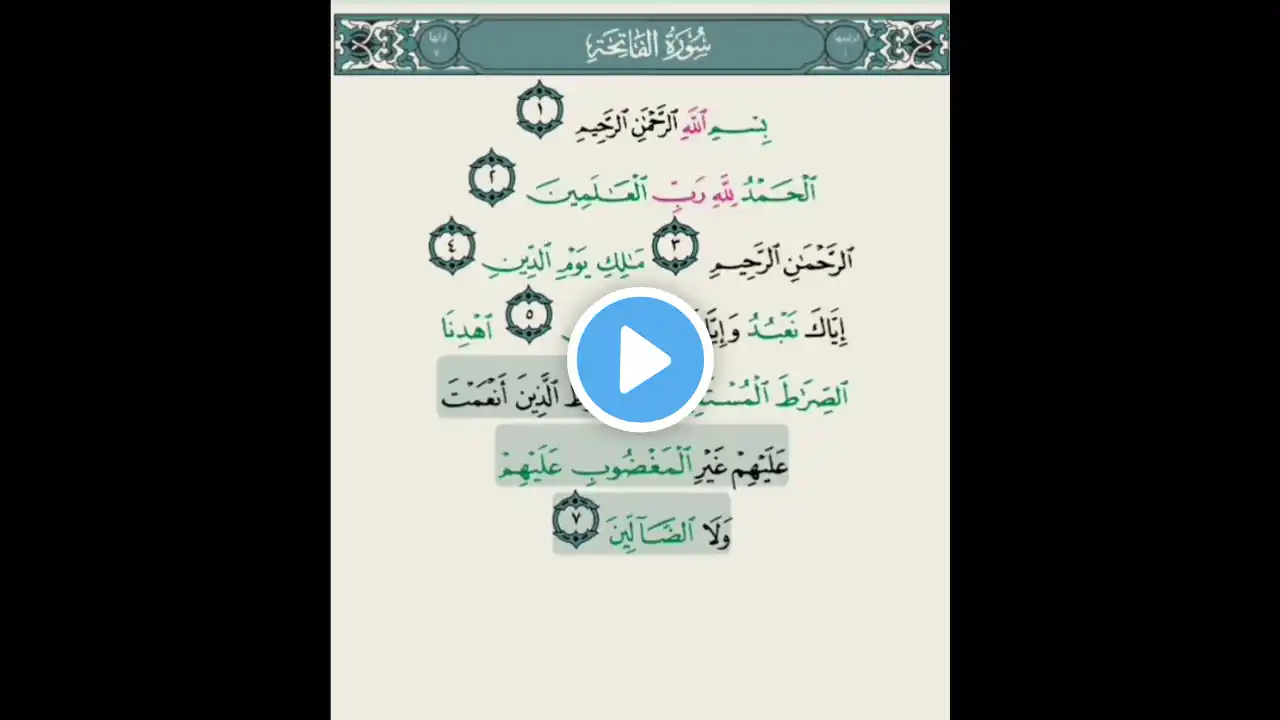 سُورَةُ الفَاتِحَةِ
آياتها ٧
ترتيبها ١
بِسۡمِ ٱللَّهِ ٱلرَّحۡمَٰنِ ٱلرَّحِيمِ ١
ٱلۡحَمۡدُ لِلَّهِ رَبِّ ٱلۡعَٰلَمِينَ ٢
ٱلرَّحۡمَٰنِ ٱلرَّحِيمِ ٣ مَٰلِكِ يَوۡمِ ٱلدِّينِ ٤
إِيَّاكَ نَعۡبُدُ ٥ ٱهۡدِنَا
ٱلصِّرَٰطَ ٱلَّذِينَ أَنۡعَمۡتَ
عَلَيۡهِمۡ غَيۡرِ ٱلۡمَغۡضُوبِ عَلَيۡهِمۡ
وَلَا ٱلضَّآلِّينَ ٧